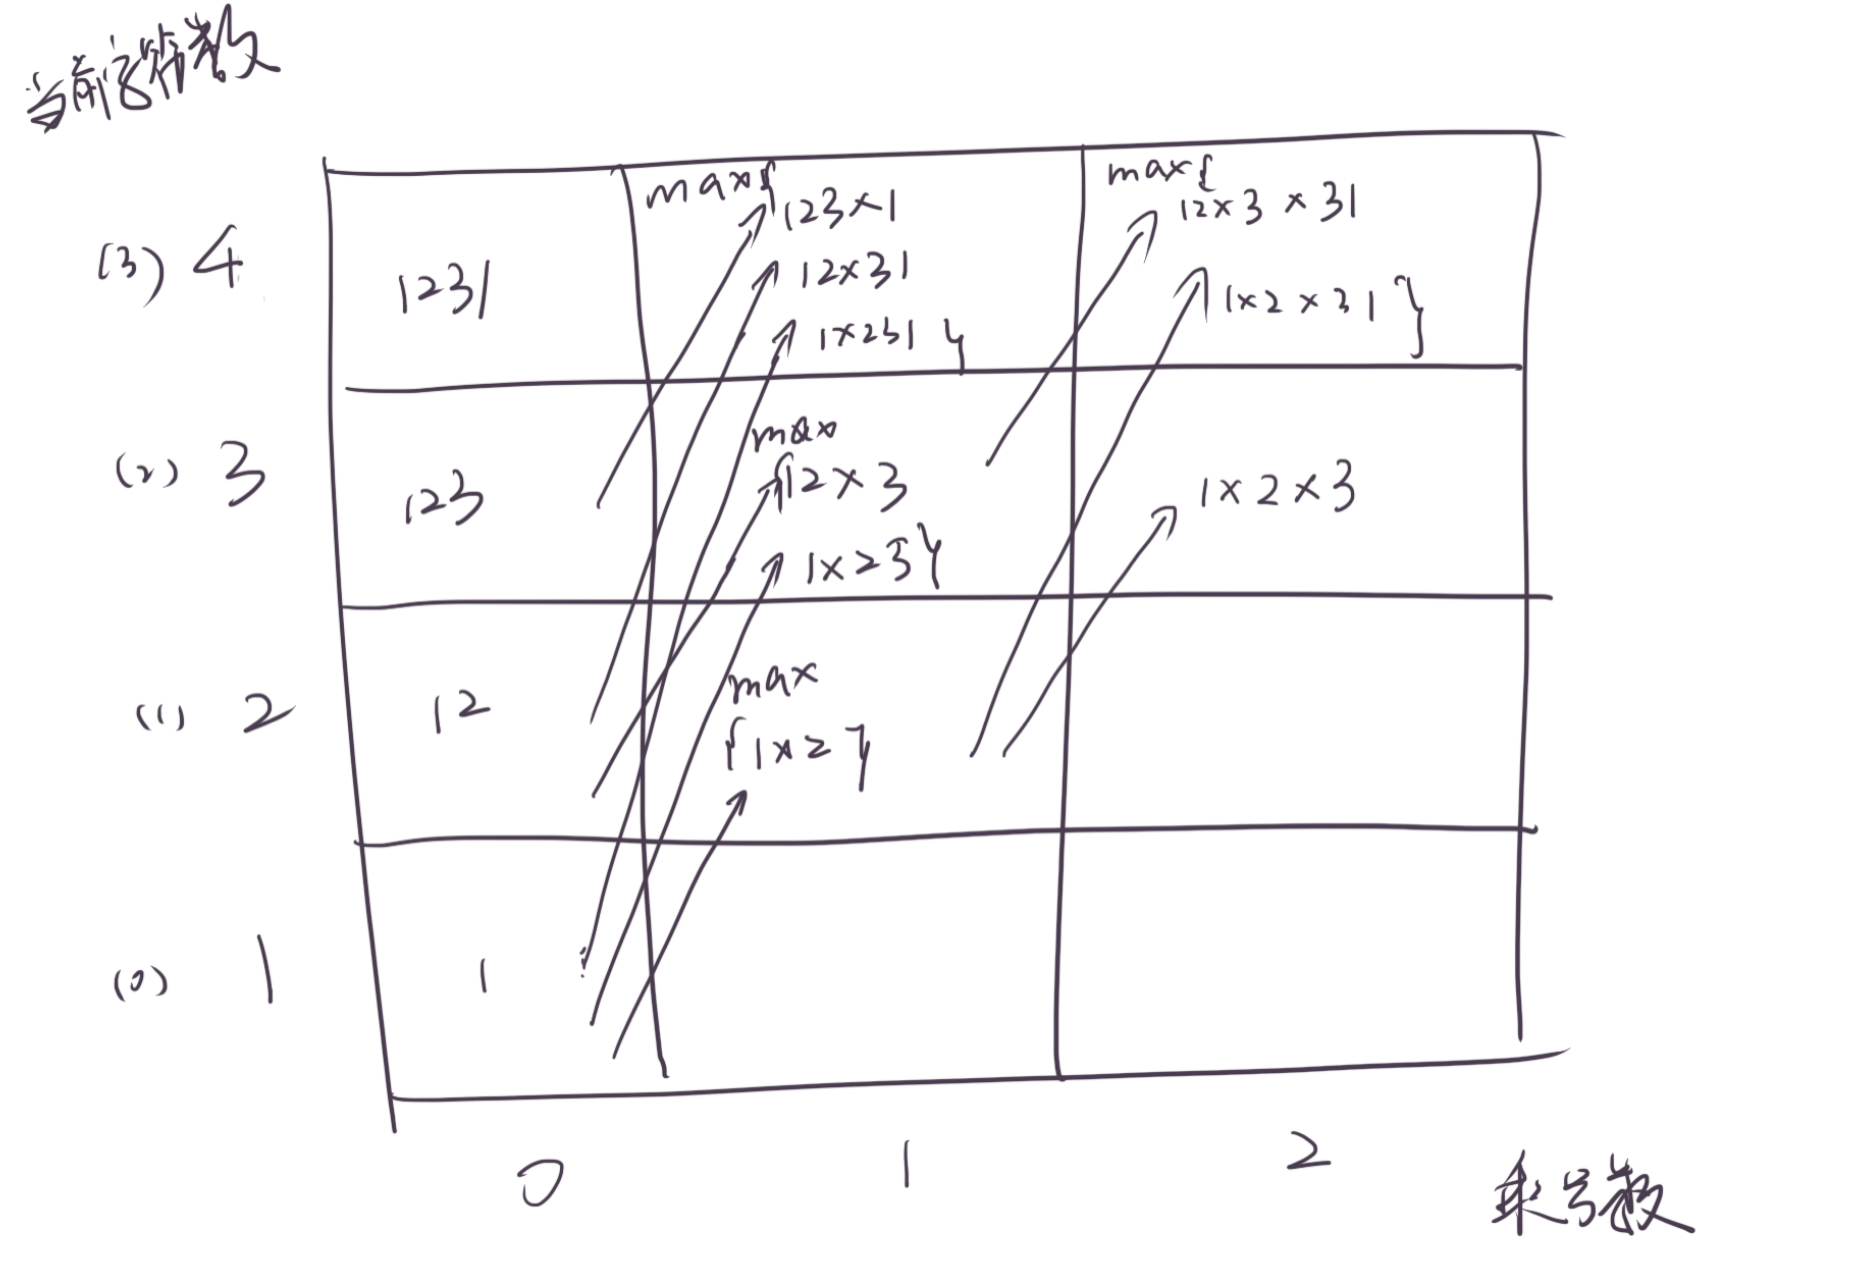 当前字符数
(3) 4
1231
max{
123×1
12×31
1×231 }
max{
12×3 × 31
1×2 × 31 }
(2) 3
123
max
{12×3
1×23}
1×2×3
(1) 2
12
max
{1×2}
(0) 1
1
0
1
2
乘号数